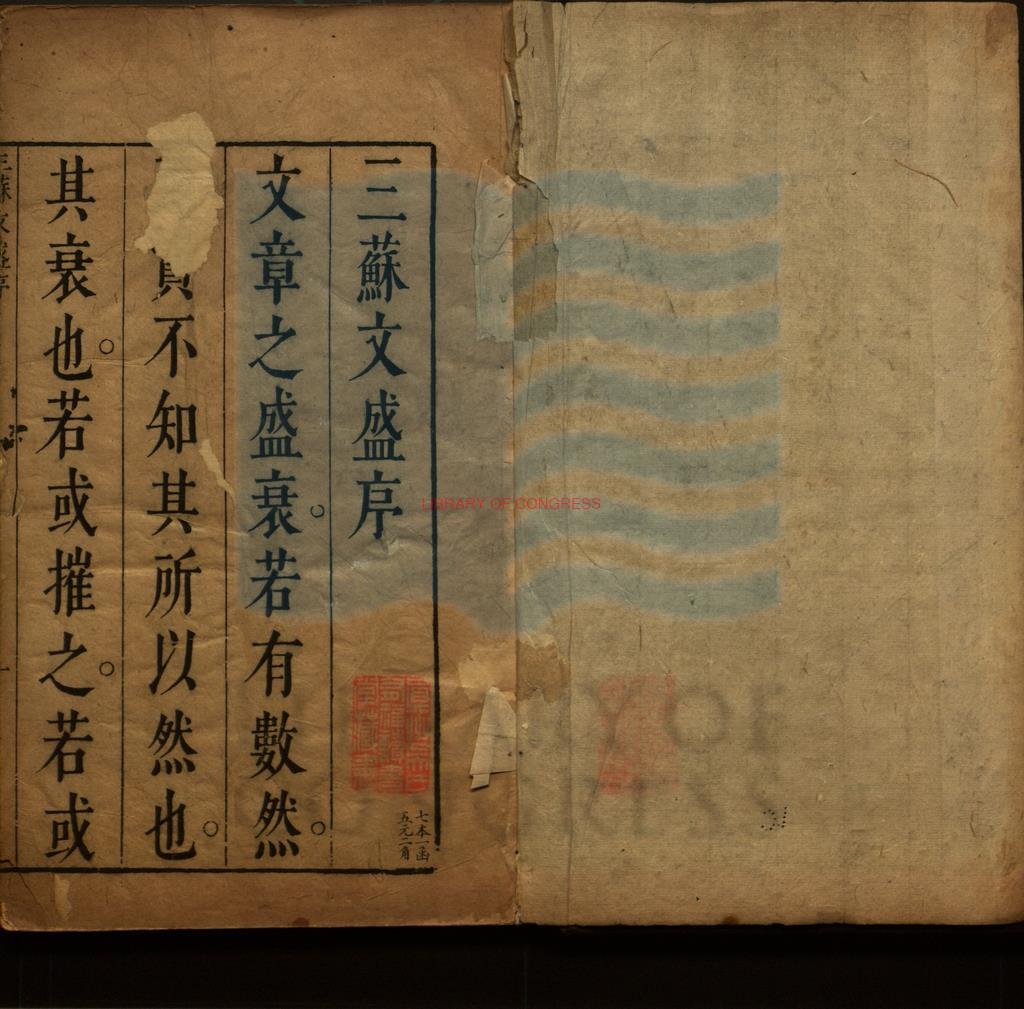 三蘇文盛序
文章之盛衰。若有數然。
不知其所以然也。
其衰也。若或摧之。若或
三蘇文盛序
七本一函
五元二角
LIBRARY OF CONGRESS